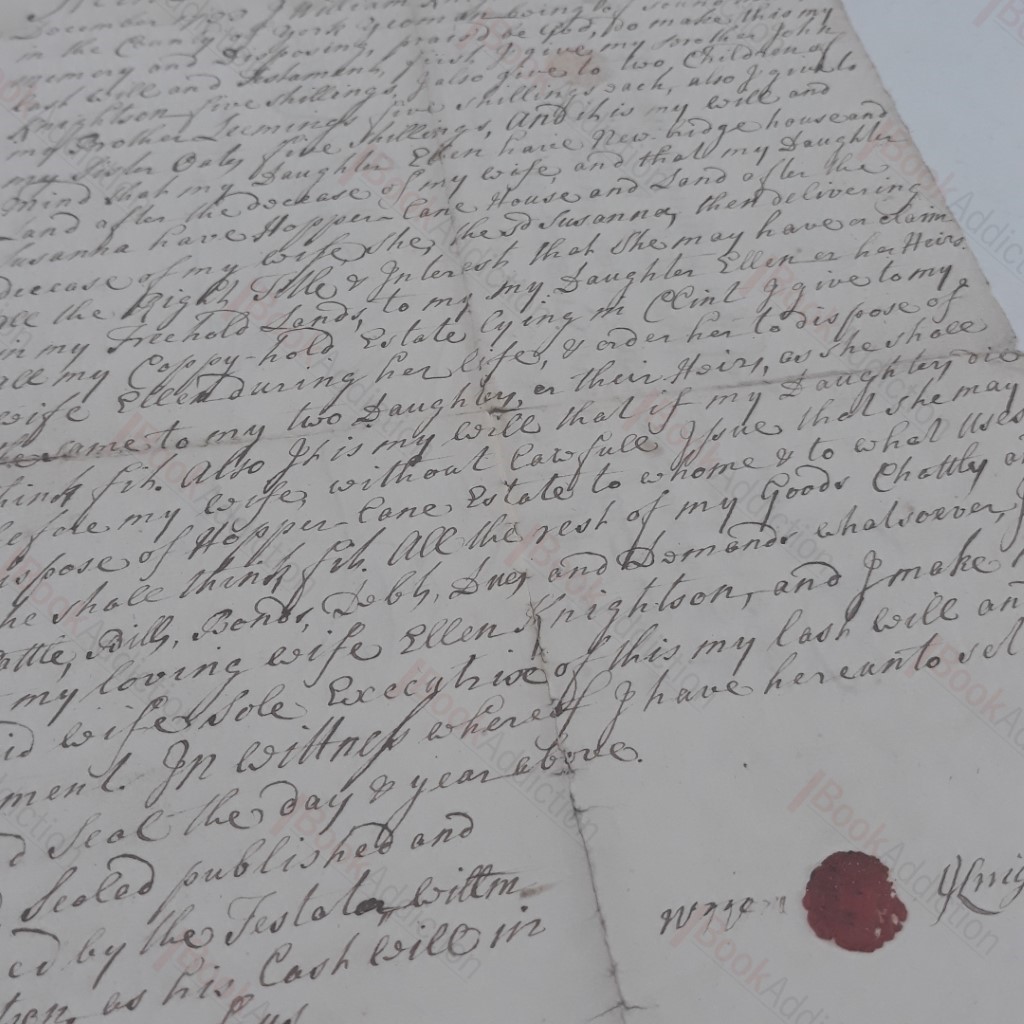 December
in the County of York yeoman being of sound
memory and Disposing, praised be God, do make this my
last will and Testament, first I give my Brother John
Knightson five shillings, I also give to two Children of
my Brother five shillings each, also I give to
my Sister Oates five shillings, And it is my will and
mind that my Daughter Ellen have New-ridge house and
Land after the decease of my wife, and that my Daughter
Susanna have Hopper-Lane House and Land after the
decease of my wife she, the sd Susanna, then delivering
all the Right Title & Interest that she may have or claim
in my Freehold Lands, to my my Daughter Ellen or her Heirs
all my Coppy-hold Estate lying in Clint I give to my
wife Ellen during her life, & order her to dispose of
the same to my two Daughters, or their Heirs, as she shall
think fit. Also It is my will that if my Daughters die
before my wife, without Lawfull Issue that she may
ispose of Hopper-Lane Estate to whome & to what Uses
he shall think fit. All the rest of my Goods Chattls
attle, Bills, Bonds, Debts, Dues and Demands whatsoever, I
my loving wife Ellen Knightson, and I make
id wife Sole Execytrix of this my last will an
ment. In wittness whereof I have hereunto set
d Seal the day & year above.
Sealed published and
ed by the Testator willm
as his Last will in
Knig
BookAddiction